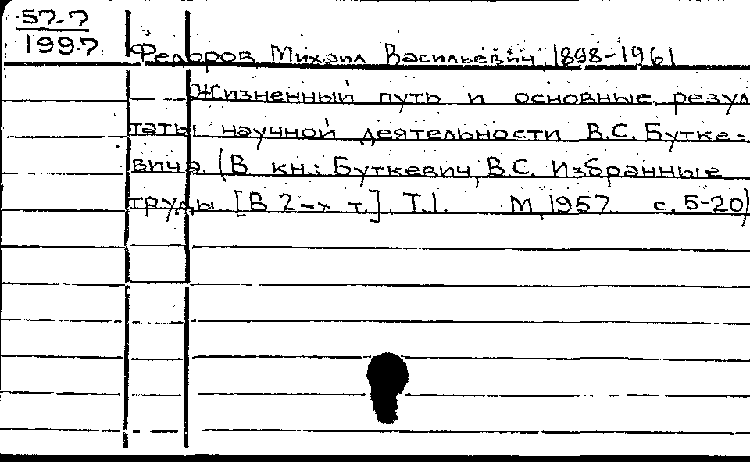 57-7
1997
Федоров Михаил Васильевич, 1898-1961
Жизненный путь и основные резул
таты научной деятельности В.С. Бутке-
вича. (В кн.: Буткевич, В.С. Избранные
труды. [В 2-х т.]. Т.1. М, 1957. с. 5-20)